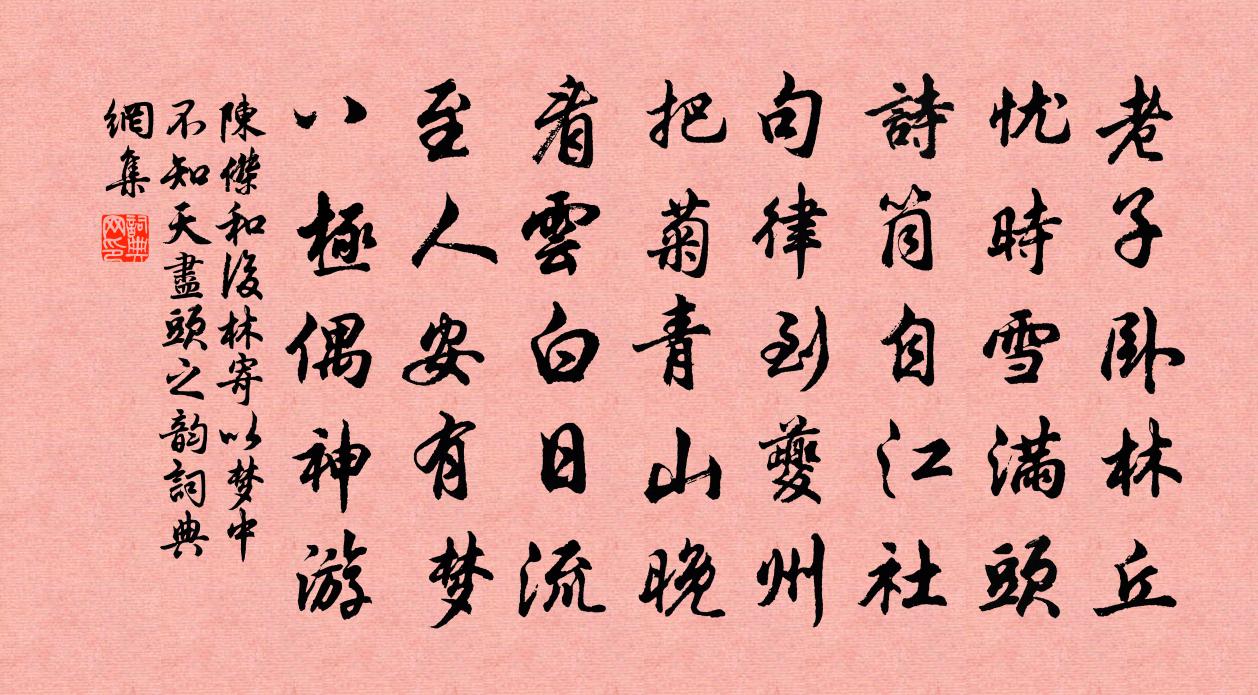 老子卧林丘
忧時雪满頭
詩筒自江社
句律到夔州
把菊青山晚
看雲白日流
至人安有梦
八極偶神游
陳傑和後林寄以梦中
不知天盡頭之韵詞典
網集
詞典网印